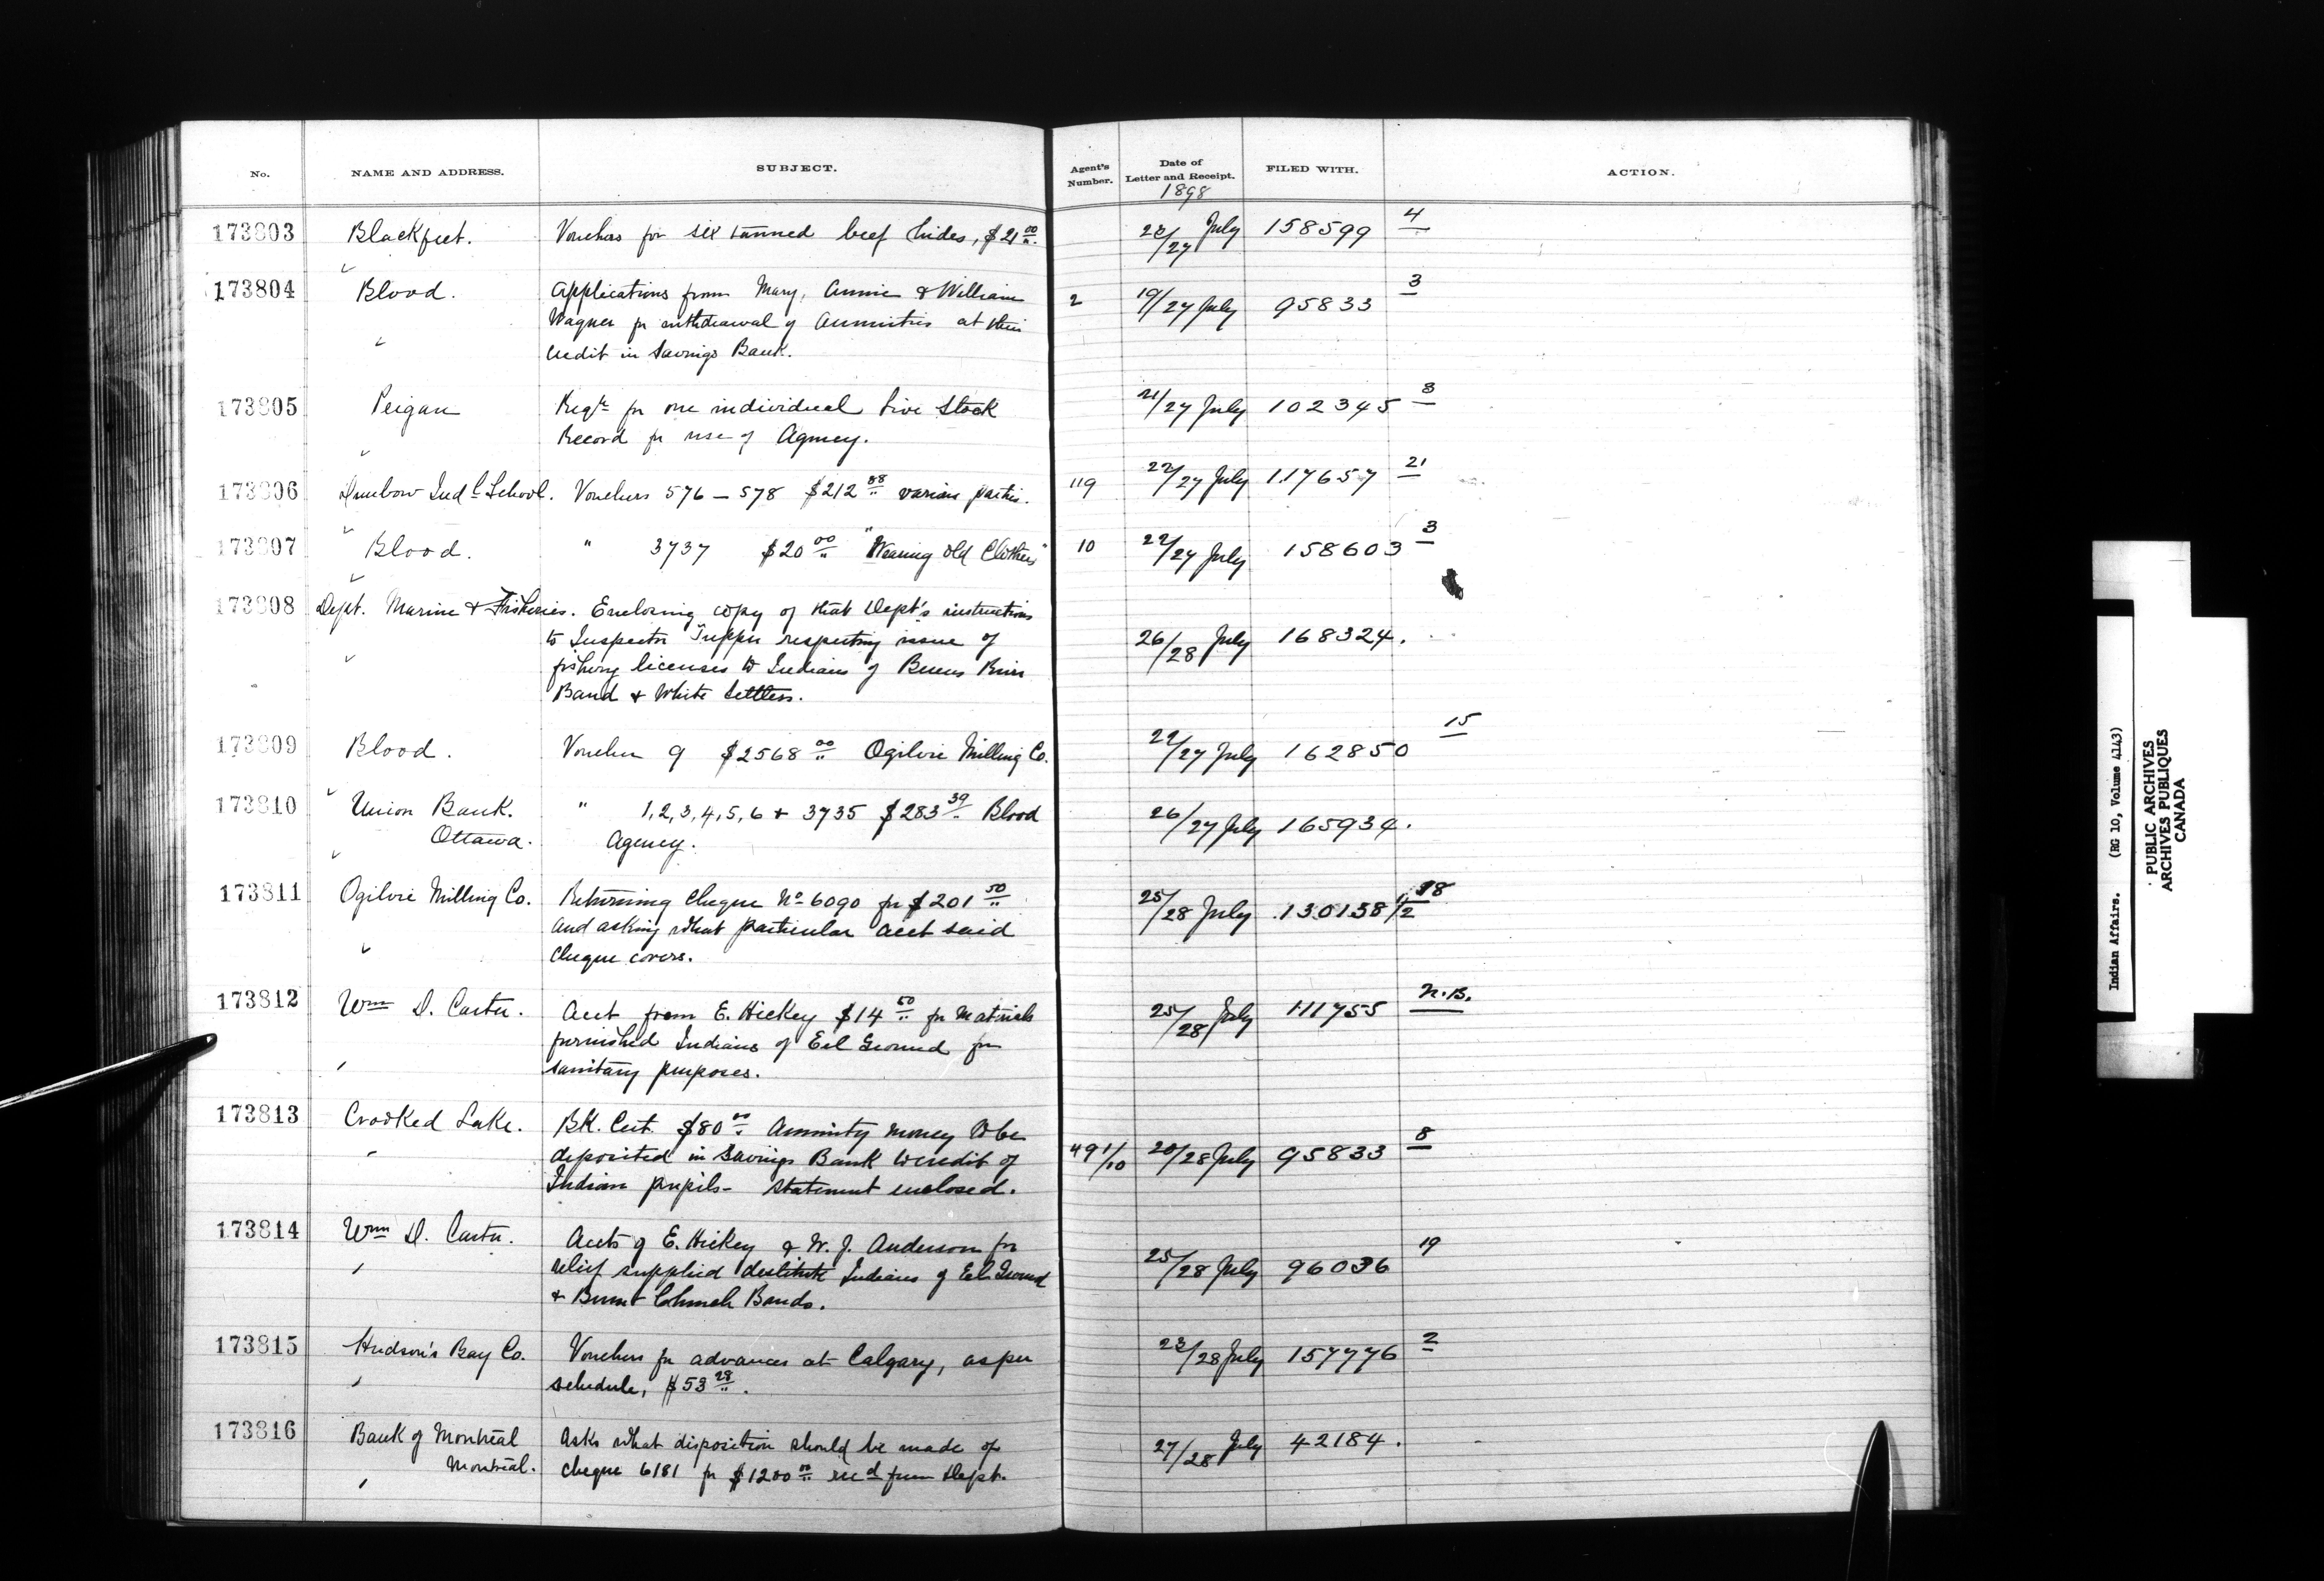 No. NAME AND ADDRESS. SUBJECT. Agent's Number. Date of Letter and Receipt. FILED WITH. ACTION.
1898
173803 Blackfeet. Vouchers for six tanned beef hides, $21 00/". 23/27 July 158599 4
173804 Blood. Applications from Mary, Annie & William 2 19/27 July 95833 3
Wagner fr withdrawal of Annuities at their
credit in Savings Bank.
173805 Peigan Reqn fr one individual Live Stock 21/27 July 102345 8
Record fr use of Agency.
173806 Dunbow Indl School. Vouchers 576 – 578 $212 88/" various parties. 119 22/27 July 117657 21
173807 Blood. " 3737 $20 00/" "Wearing Old Clothes" 10 22/27 July 158603 3
173808 Dept. Marine & Fisheries. Enclosing copy of that Dept's instructions 26/28 July 168324.
to Inspector Tupper respecting issue of
fishing licenses to Indians of Berens River
Band & White Settlers.
173809 Blood. Voucher 9 $2568 00/" Ogilvie Milling Co. 22/27 July 162850 15
173810 Union Bank. " 1,2,3,4,5,6 & 3735 $283 39/" Blood 26/27 July 165934.
Ottawa. Agency.
173811 Ogilvie Milling Co. Returning Cheque No 6090 fr $201 50/" 25/28 July 130138 1/2 18
and asking what particular acct said
Cheque covers.
173812 Wm D. Carter. Acct from E. Hickey $14 50/" fr Materials 25/28 July 111755 N.B.
furnished Indians of Eel Ground for
sanitary purposes.
173813 Crooked Lake. BK. Cert. $80 00/" Annuity money to be 49 1/10 20/28 July 95833 8
deposited in Savings Bank to credit of
Indian pupils - Statement enclosed.
173814 Wm D. Carter. Accts of E. Hickey & W. J. Anderson for 25/28 July 96036 19
relief supplied destitute Indians of Eel Ground
& Burnt Church Bands.
173815 Hudson's Bay Co. Vouchers fr advances at Calgary, as per 23/28 July 157776 2
schedule, $53 28/".
173816 Bank of Montreal Asks what disposition should be made of 27/28 July 42184.
Montreal. cheque 6181 fr $1200 00/" recd from Dept.
Indian Affairs. (RG 10, Volume 4143)
PUBLIC ARCHIVES
ARCHIVES PUBLIQUES
CANADA